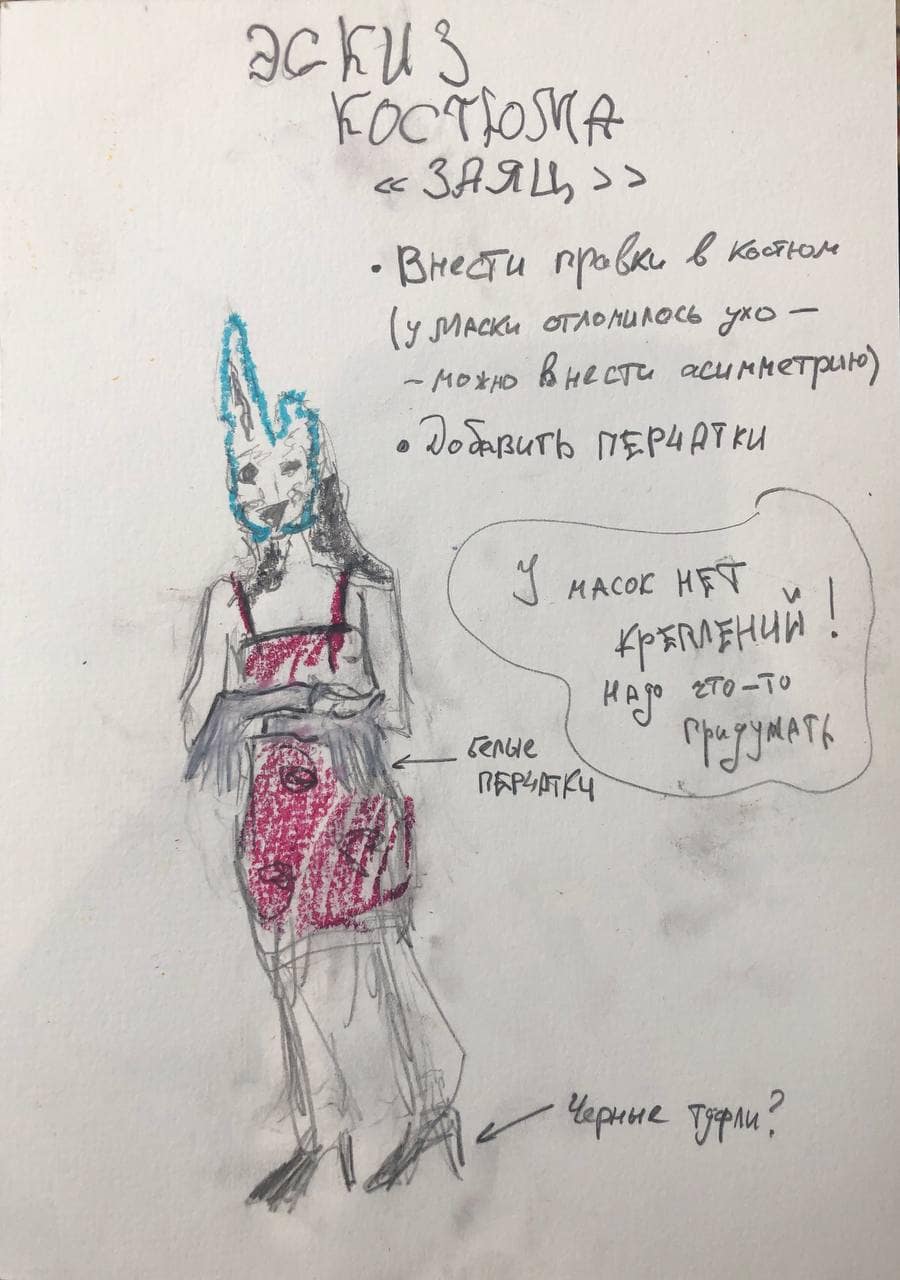 ЭСКИЗ
КОСТЮМА
«ЗАЯЦ»
• Внести правки в костюм
(у маски отломилось ухо –
– можно внести асимметрию)
• Добавить ПЕРЧАТКИ
У МАСОК НЕТ
КРЕПЛЕНИЙ!
НАДО ЧТО-ТО
ПРИДУМАТЬ
БЕЛЫЕ
ПЕРЧАТКИ
Черные туфли?